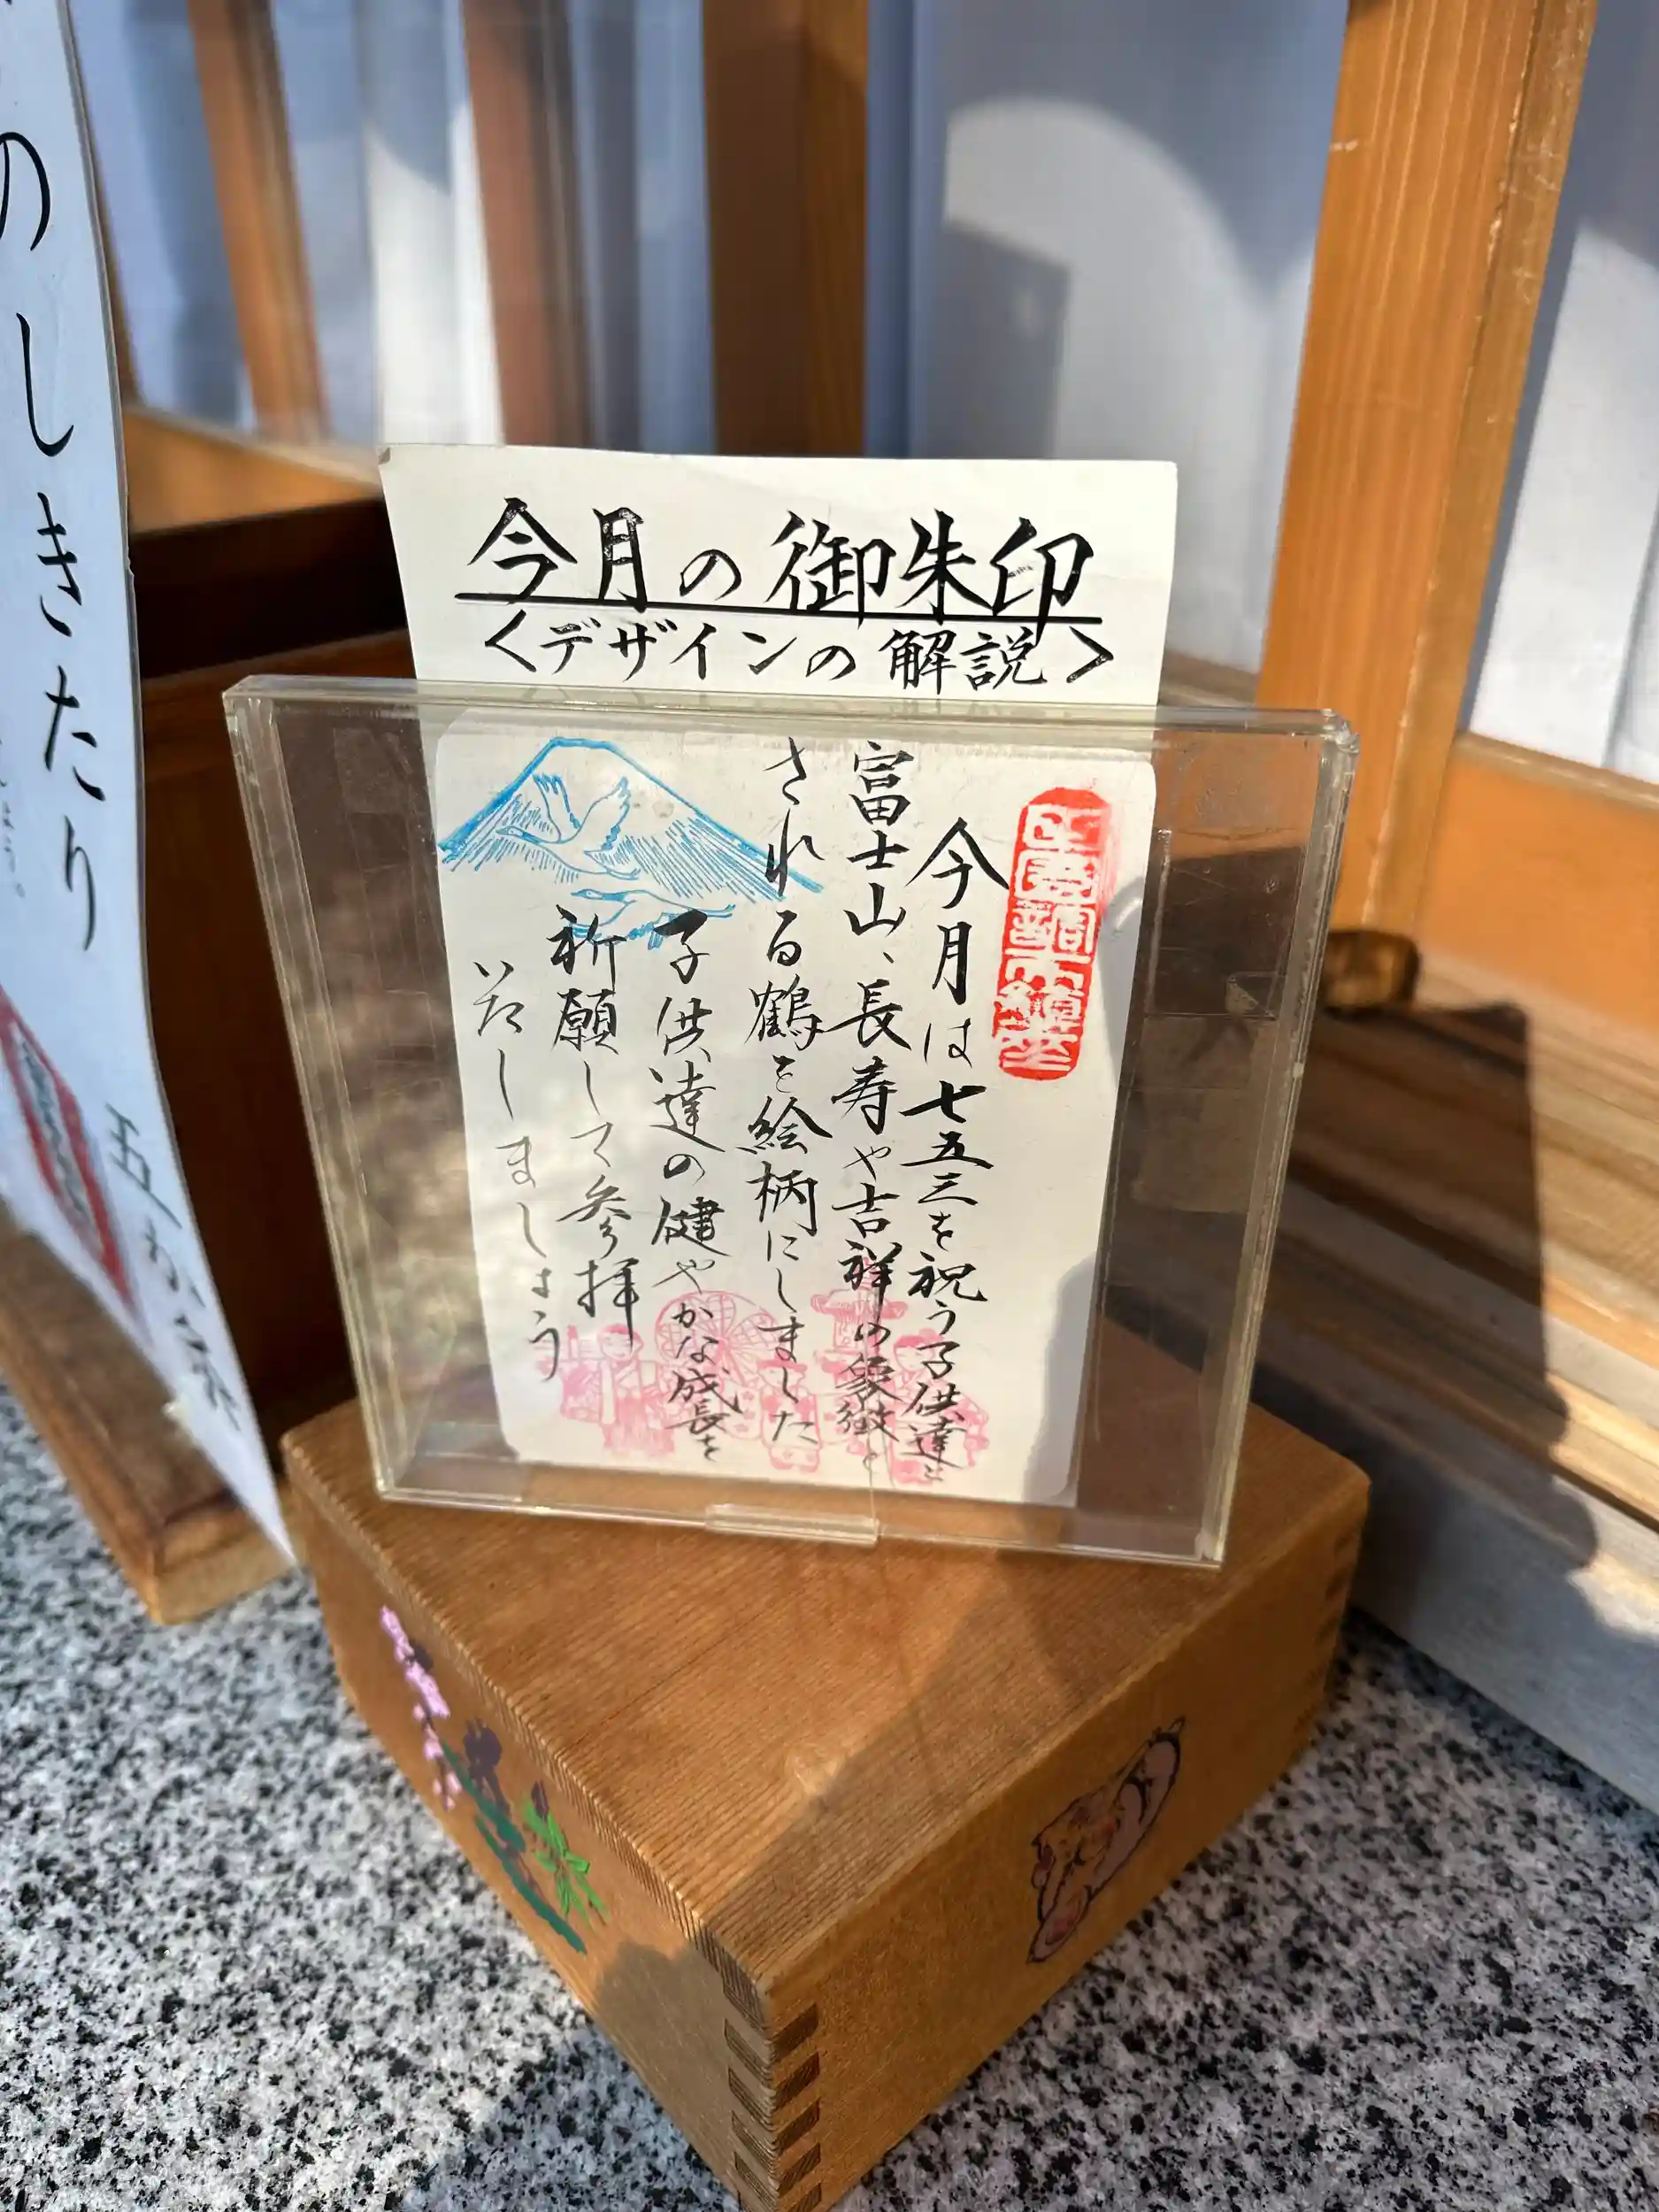 今月の御朱印
<デザインの解説>
今月は七五三を祝う子供達と
富士山、長寿や吉祥の象徴と
される鶴を絵柄にしました
子供達の健やかな成長を
祈願して参拝
いたしましょう
のしきたり